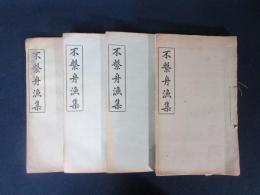 不繫舟漁集
不繫舟漁集
不繫舟漁集
不繫舟漁集